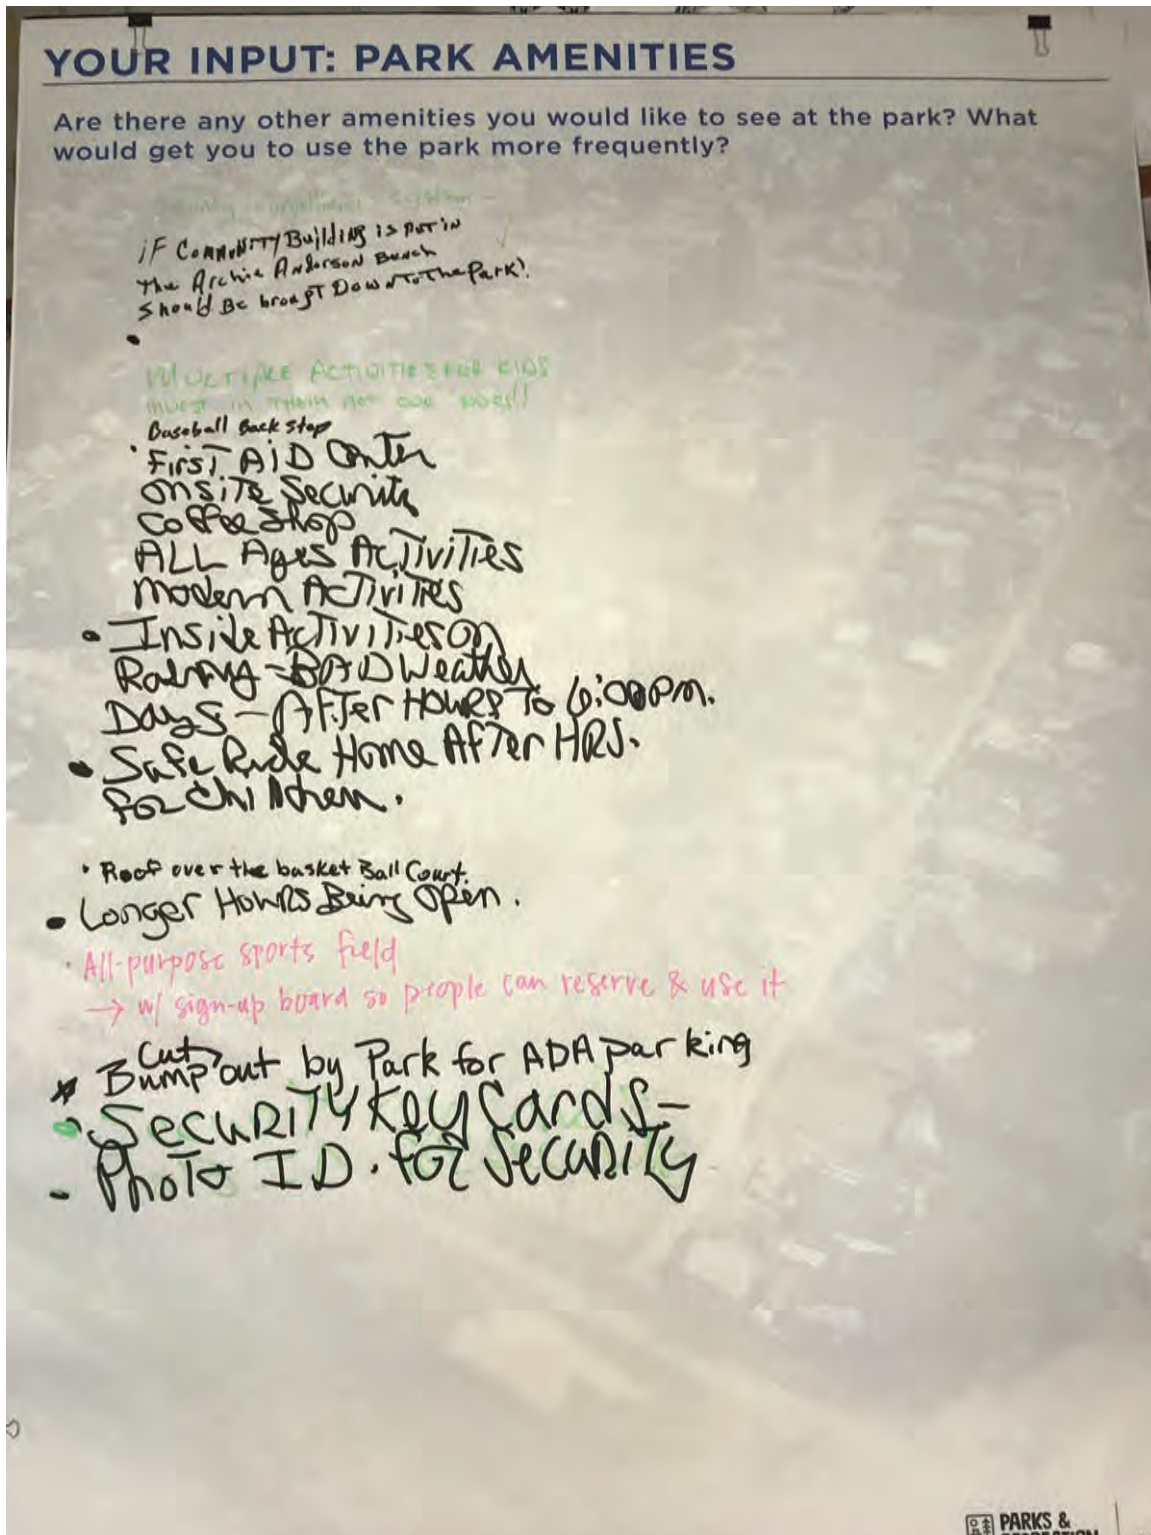 YOUR INPUT: PARK AMENITIES
Are there any other amenities you would like to see at the park? What
would get you to use the park more frequently?
system -
iF CommuNiTY Building is put in
The Archie Anderson Bench
Should Be brougT DowN To The Park!
MULTIPLE ACTIVITIES FOR KIDS
INVEST IN THEM NOT OUR
Baseball Back Stop
• First AiD Center
Onsite Security
Coffee Shop
ALL Ages Activities
Modern Activities
• Inside Activities on
Rainy - BAD Weather
Days - After Hours To 6:00 PM.
• Safe Ride Home After HRS.
for Children.
• Roof over the basket Ball Court.
• Longer Hours Being Open.
• All-purpose sports field
→ w/ sign-up board so people can reserve & use it
Cut
* Bump out by Park for ADA parking
• Security Key Cards -
- Photo ID. for Security
PARKS &
RECREATION